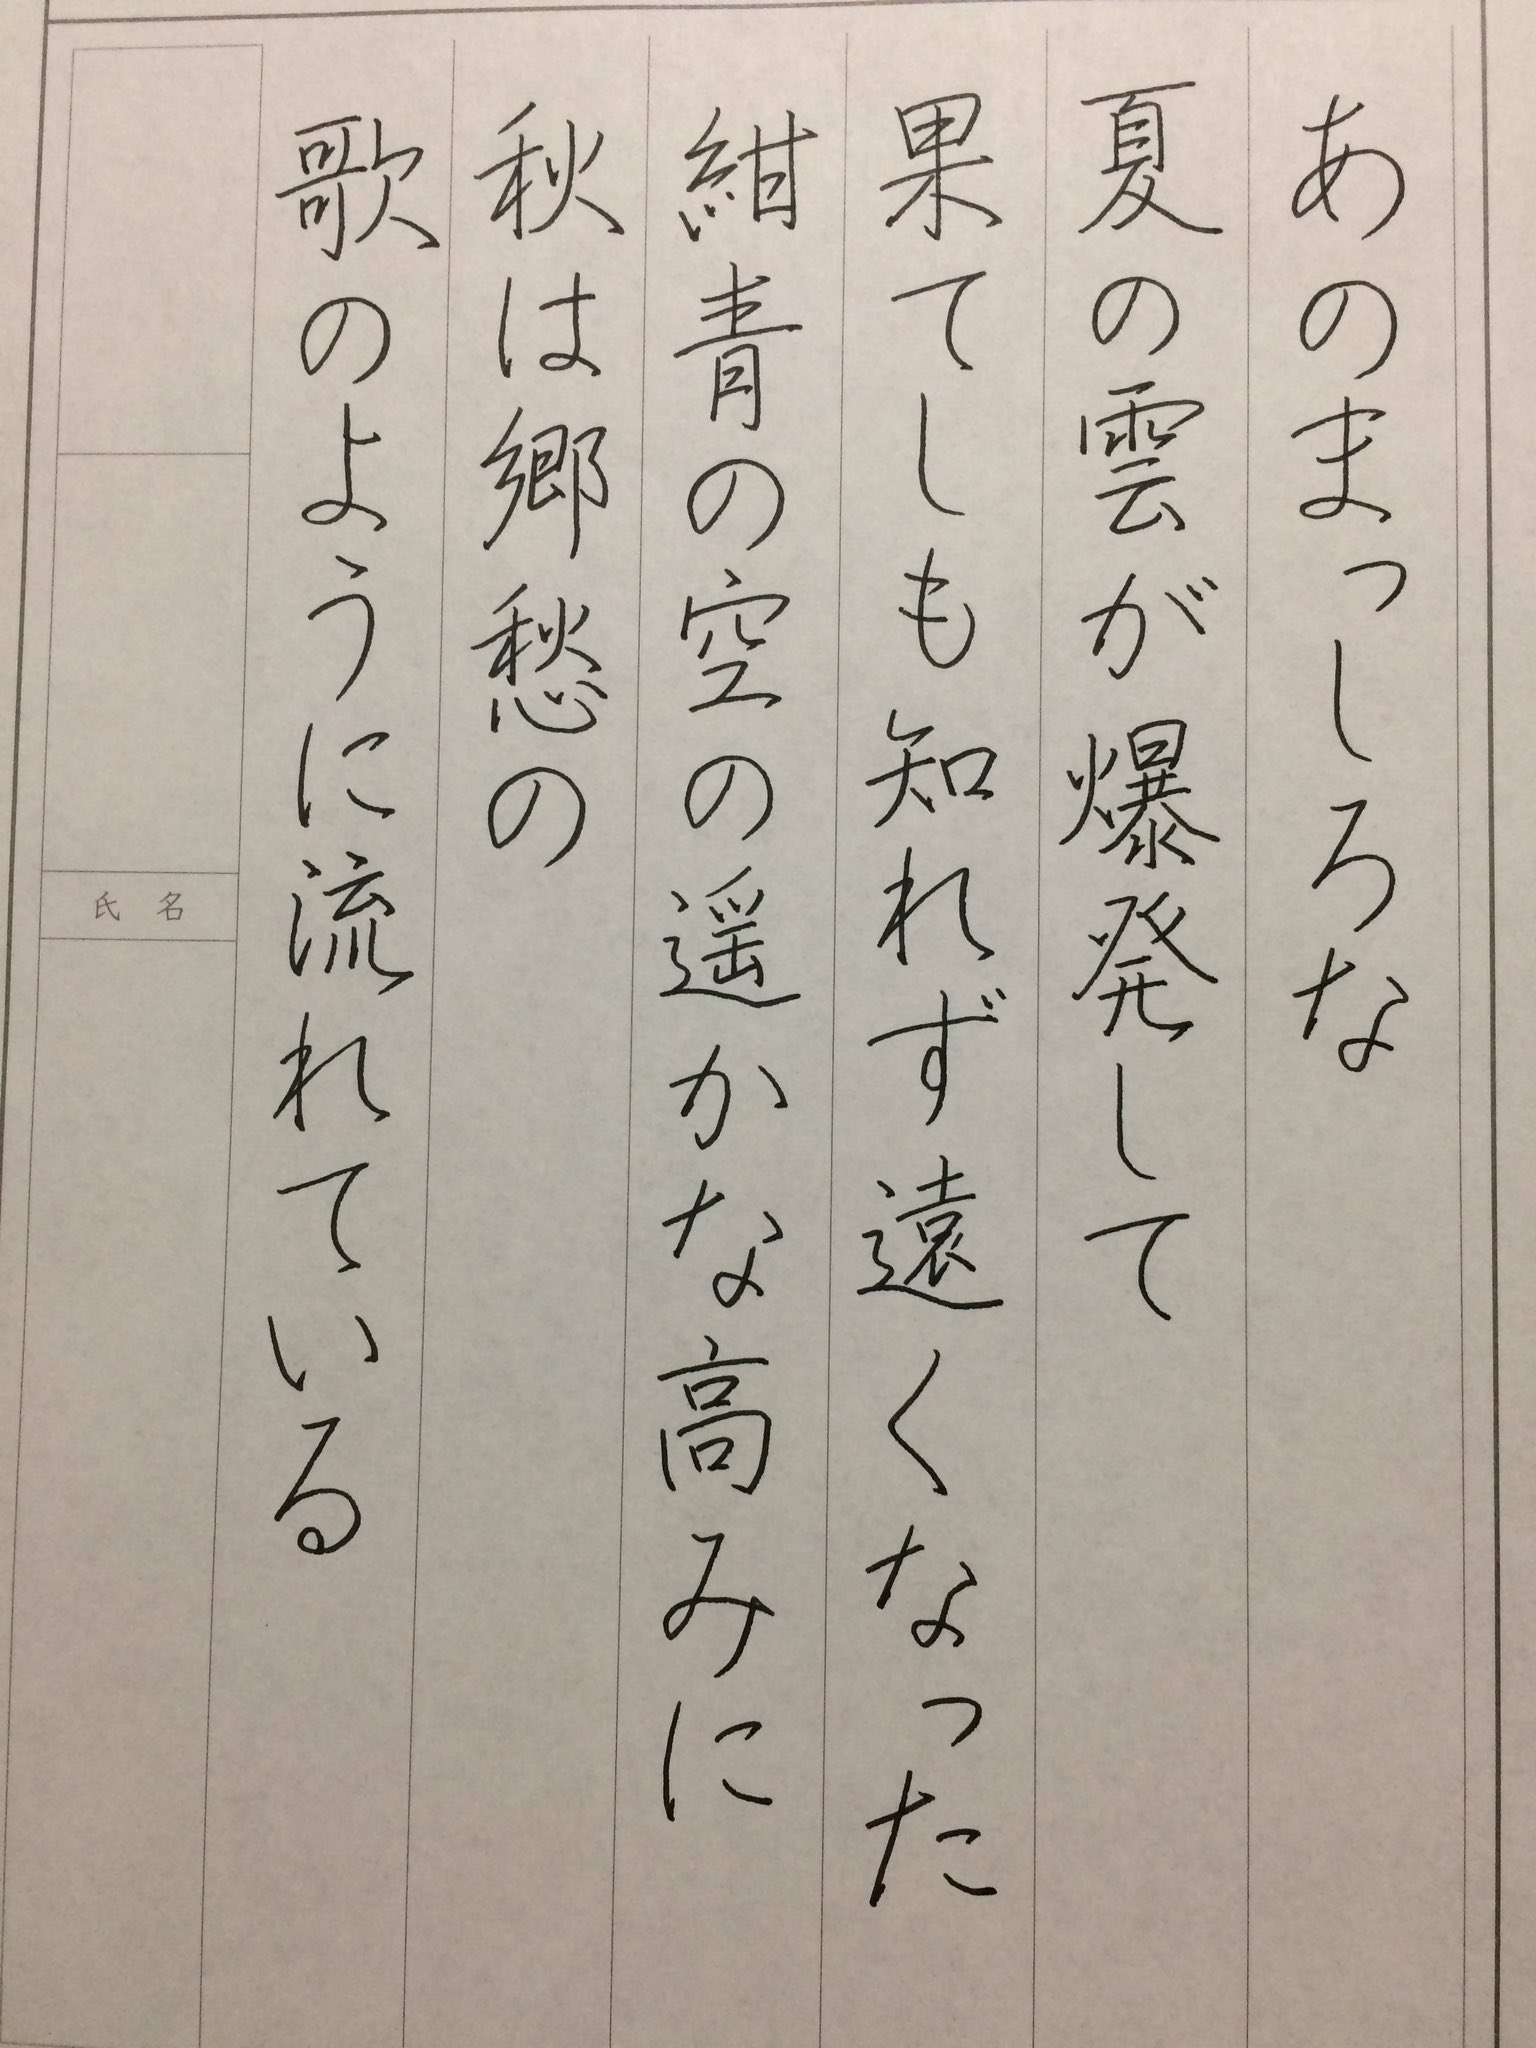 あのまっしろな
夏の雲が爆発して
果てしも知れず遠くなった
紺青の空の遥かな高みに
秋は郷愁の
歌のように流れている
氏名